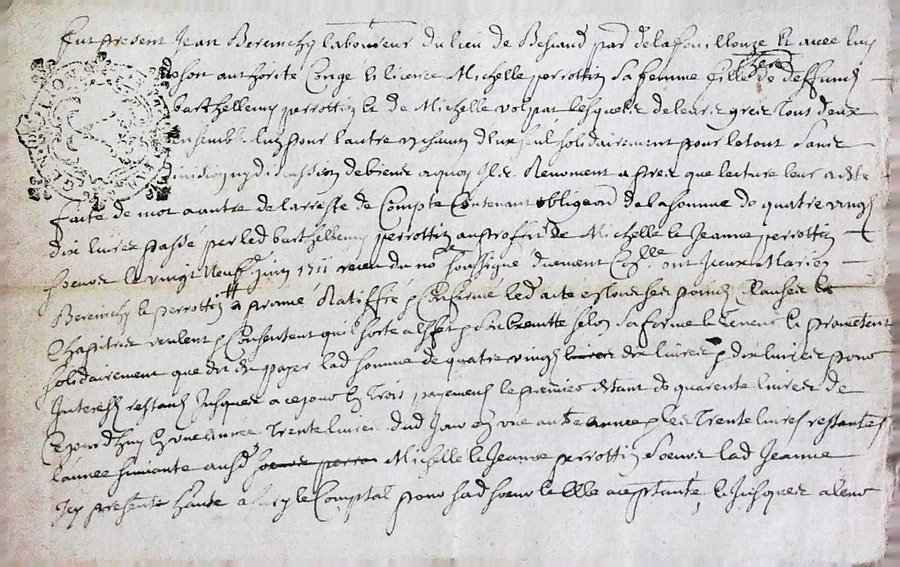 Fut present Jean Berenchy laboureur du lieu de Besiand par de lafouillouze et avec luy
de son authorité Conge et licence Michelle perrottin sa femme fille de deffunct
barthellemy perrottin et de Michelle volpat lesquels de leurs grés tous deux
ensemble luy pour l'autre un chacun deux seul solidairement pour le tout sans
division ny discussion de biens a quoy Ils Renoncent apres que lecture leur a esté
faite de mot a autre de larreste de Compte Contenant obligaon de la somme de quatre vingt
dix livres passé par led barthellemy perrottin au proffit de Michelle et Jeanne perrottin
soeurs le vingt neuf juin 1711 receu du nore soussigné duement Collé ont iceux Mariez
Berenchy et perrottin aprouvé Ratiffié Confirmé led acte en tous ses points Clauses et
Chapitres veulent Consentent qu'il sorte a effet selon sa forme et teneur et promettent
solidairement payer lad somme de quatre vingt dix livres dix livres pour
Interests restants Jusques a ce jour En Trois payements le premier estant de quarente livres de
Ce jourdhuy En une annee Trente livres dud Jour En une autre annee et les Trente livres restantes
lannee suivante ausd Michelle et Jeanne perrottin soeurs lad Jeanne
Icy presente le Comptal pour sad soeur et elle acceptante et Jusques a leur